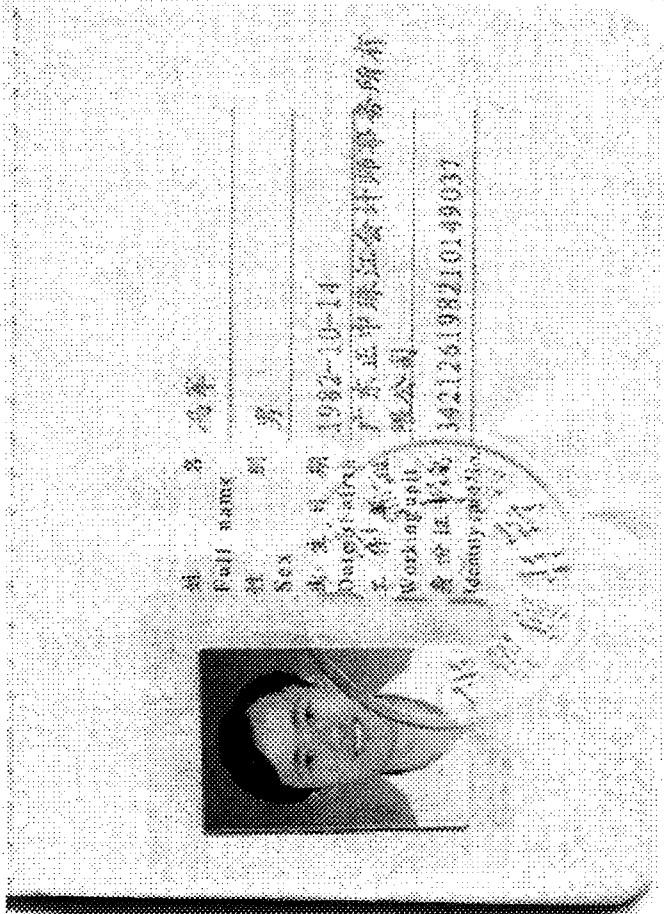 姓 名 冯军
Full name
性 别 男
Sex
出 生 日 期 1982-10-14
Date of birth
工 作 单 位 广东正中珠江会计师事务所有
限公司
Working unit
身 份 证 号 码 342126198210149037
Identity card No.